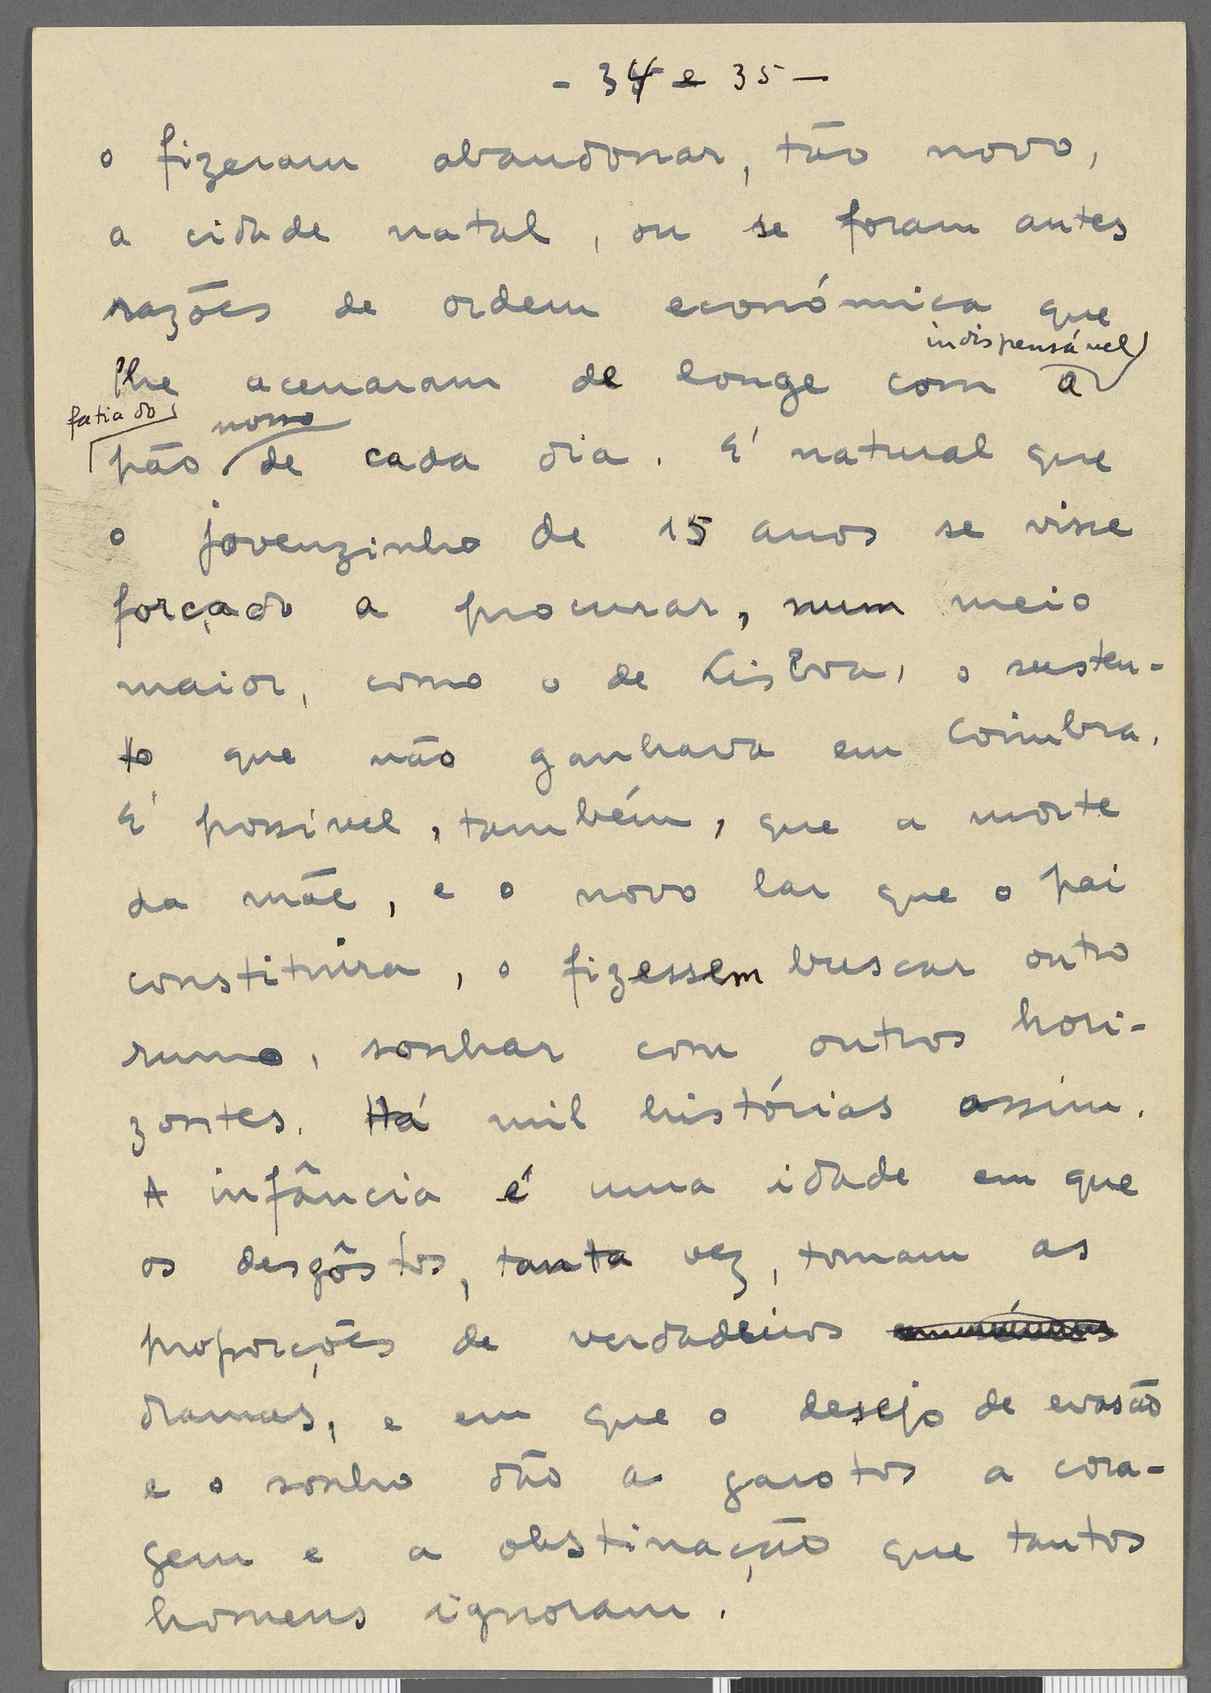 - 34 e 35 -
o fizeram abandonar, tão novo,
a cidade natal, ou se foram antes
razões de ordem económica que
indispensável
lhe acenaram de longe com a
fatia do
nosso
pão de cada dia. É natural que
o jovenzinho de 15 anos se visse
forçado a procurar, num meio
maior, como o de Lisboa, o susten-
to que não ganhava em Coimbra.
É possível, também, que a morte
da mãe, e o novo lar que o pai
constituira, o fizessem buscar outro
rumo, sonhar com outros hori-
zontes. Há mil histórias assim.
A infância é uma idade em que
os desgôstos, tanta vez, tomam as
proporções de verdadeiros
dramas, e em que o desejo de evasão
e o sonho dão a garotos a cora-
gem e a obstinação que tantos
homens ignoram.